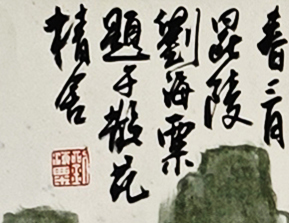 春三月
毘陵
劉海粟
題于散花
精舍